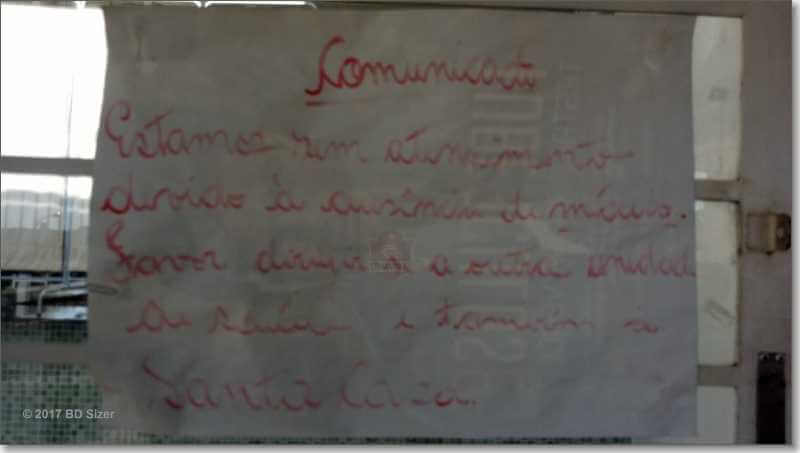 Comunicado
Estamos sem atendimento
devido à ausência de médicos.
Favor dirigir-se a outra unidade
de saúde e também à
Santa Casa.
© 2017 BD Sizer